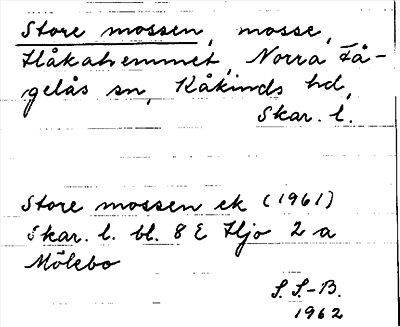 Store mossen, mosse,
Håkahemmet, Norra Få-
gelås sn, Kåkinds hd,
Skar. l.
Store mossen ek (1961)
Skar. l. bl. 8 E Hjo 2-a
Mölebo
S. S.-B.
1962